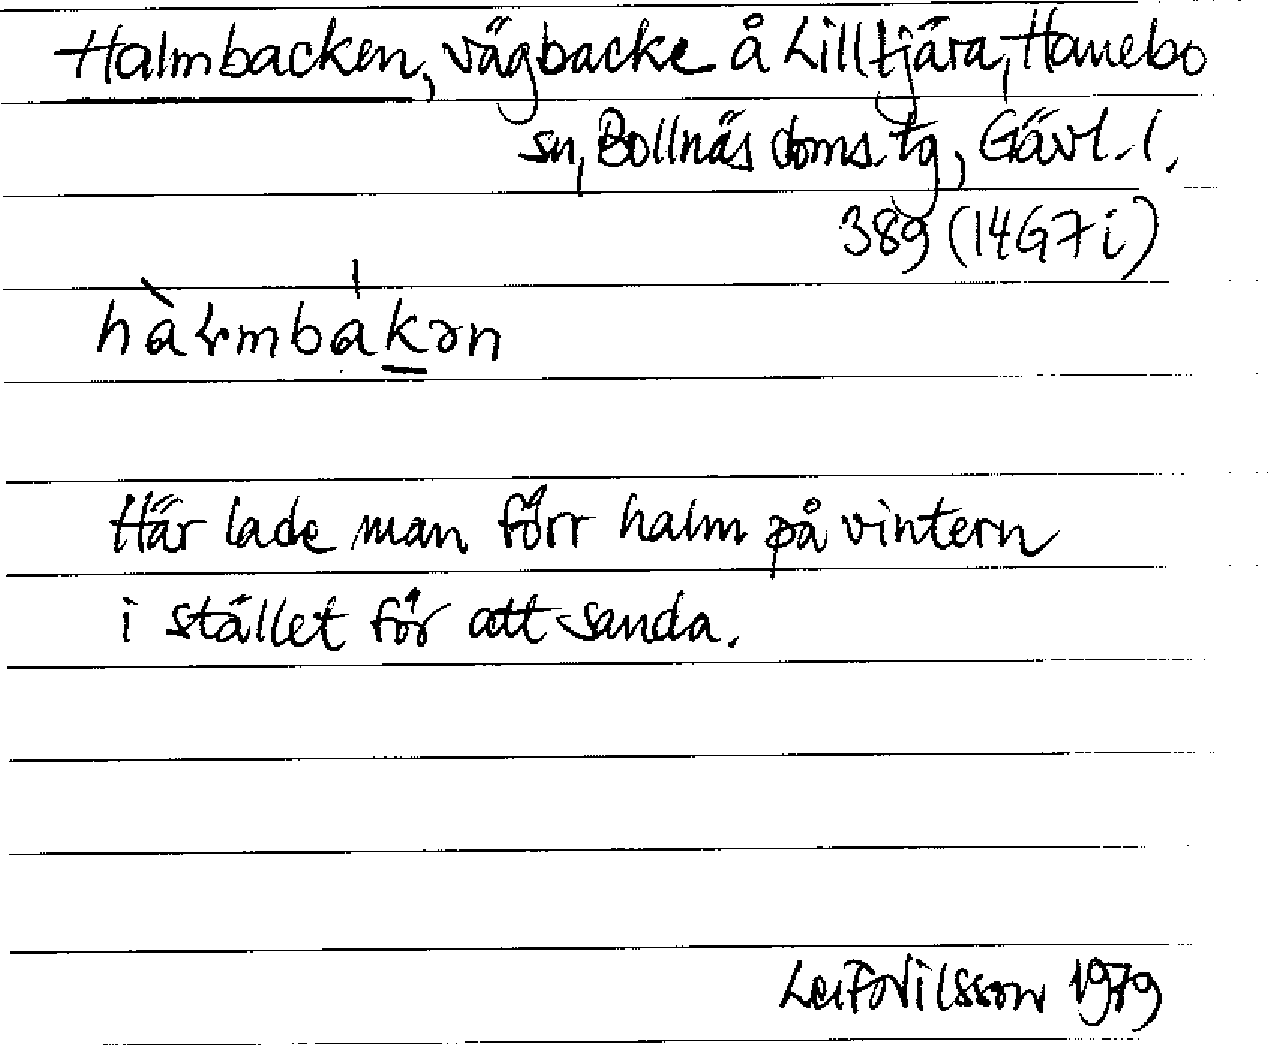 Halmbacken, vägbacke å Lilltjära, Hanebo
sn, Bollnäs doms. tg, Gävl. l.
389 (14G7i)
hàɫmbákən
Här lade man förr halm på vintern
i stället för att sanda.
Leif Nilsson 1979